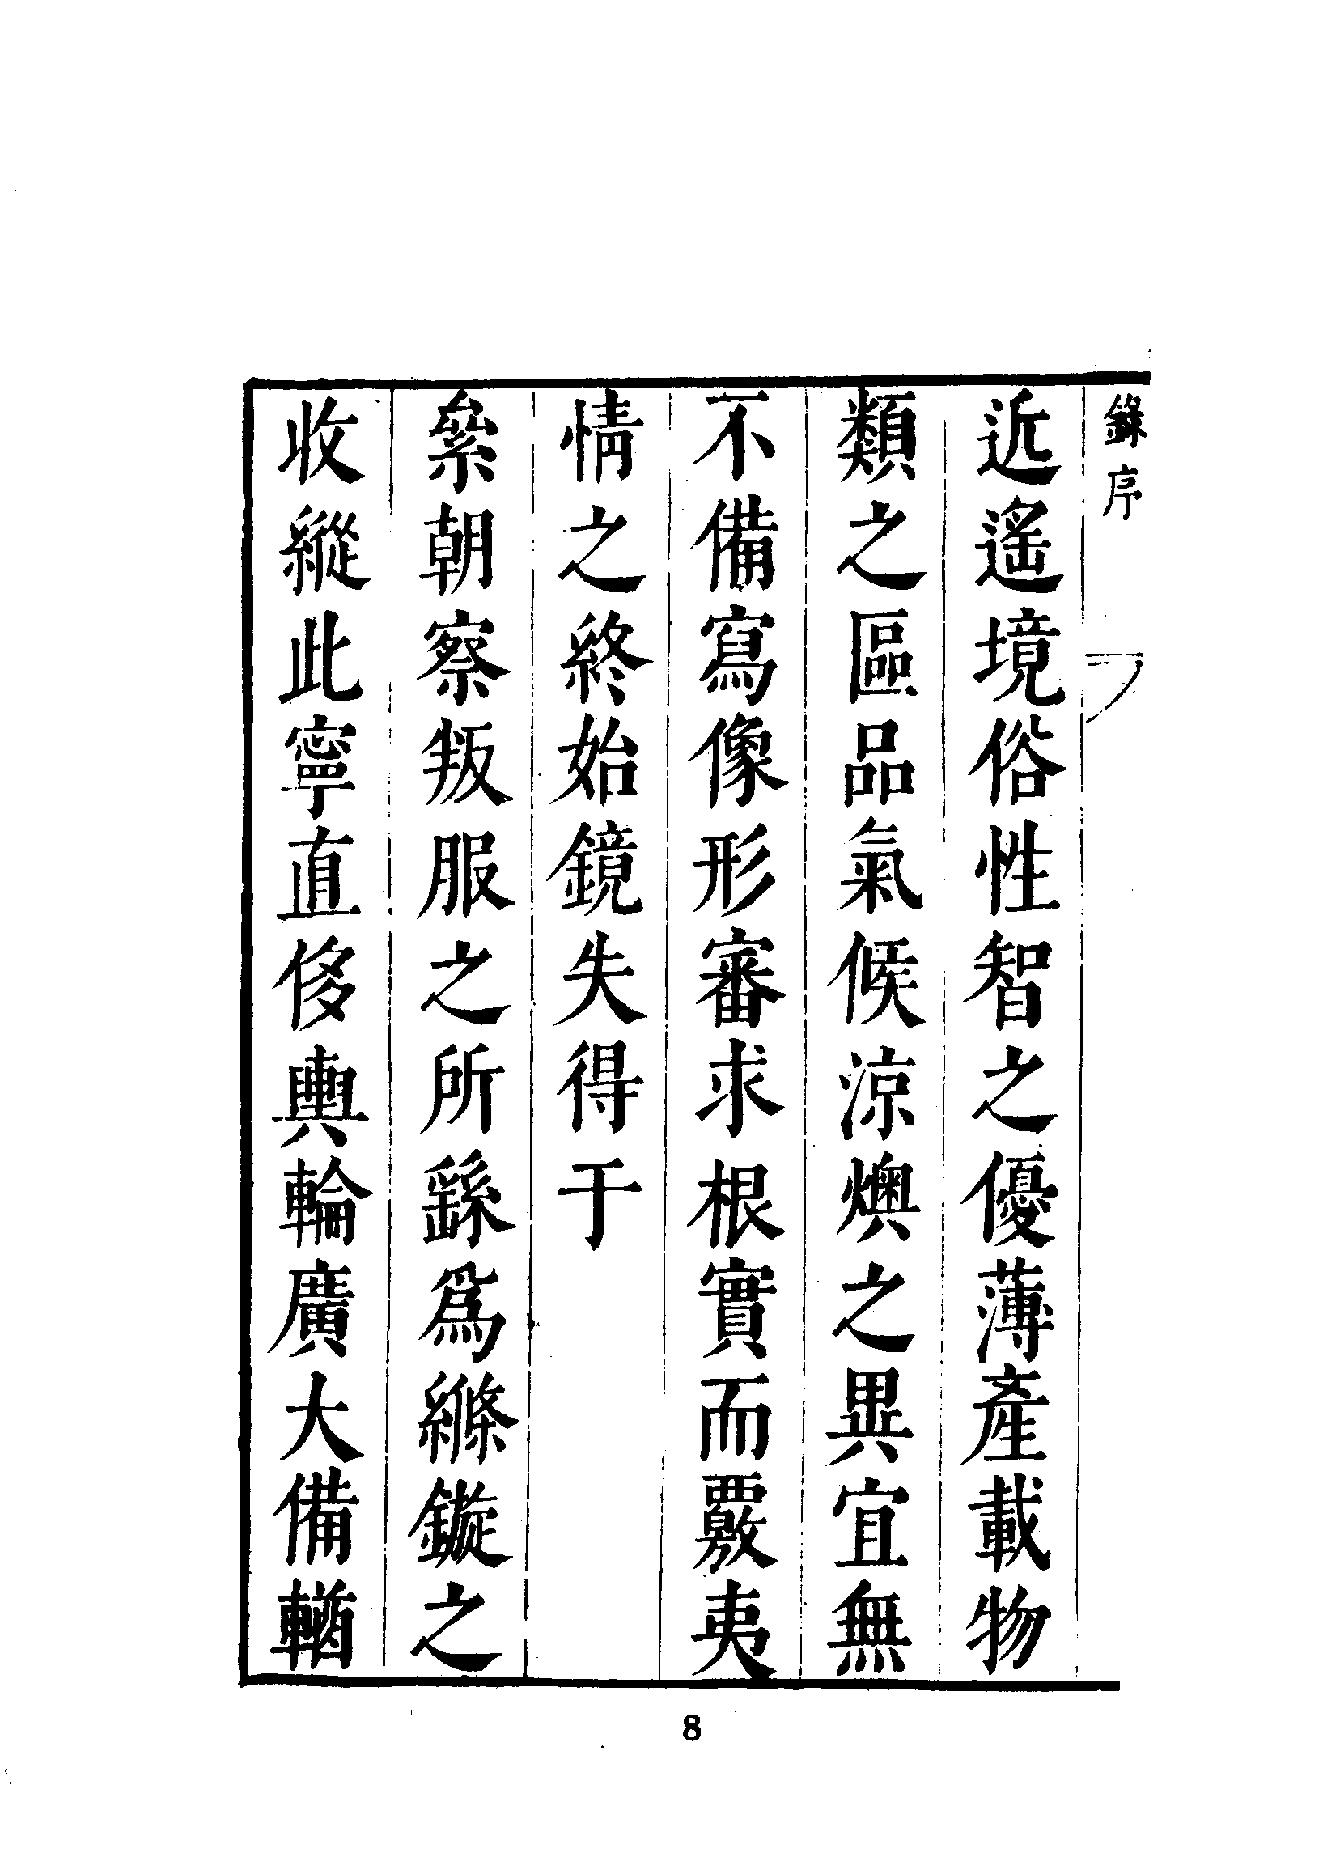 錄序
近遙境俗性智之優薄產載物
類之區品氣候涼燠之異宜無
不備寫像形審求根實而覈夷
情之終始鏡失得于
絫朝察叛服之所繇爲絛鏇之
收縱此寧直侈輿輪廣大備輶
8